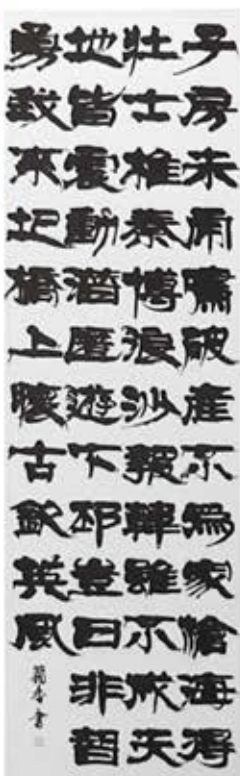 子房未虎嘯破產不為家滄海得
壯士椎秦博浪沙報韓雖不成天
地皆震動潛匿遊下邳豈曰非智
勇我來圯橋上懷古欽英風
香書